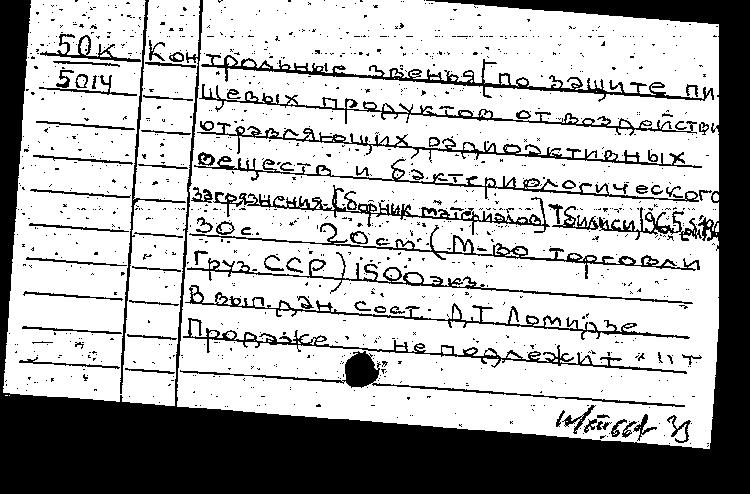 50к Контрольные звенья [по защите пи-
5014 щевых продуктов от воздействи
отравляющих, радиоактивных
веществ и бактериологического
загрязнения. [Сборник материалов] Тбилиси, 1965
30с. 20 см (М-во торговли
Груз. ССР) 1500 экз.
В вып. дан. сост. Д.Т Ломидзе
Продаже не подлежит